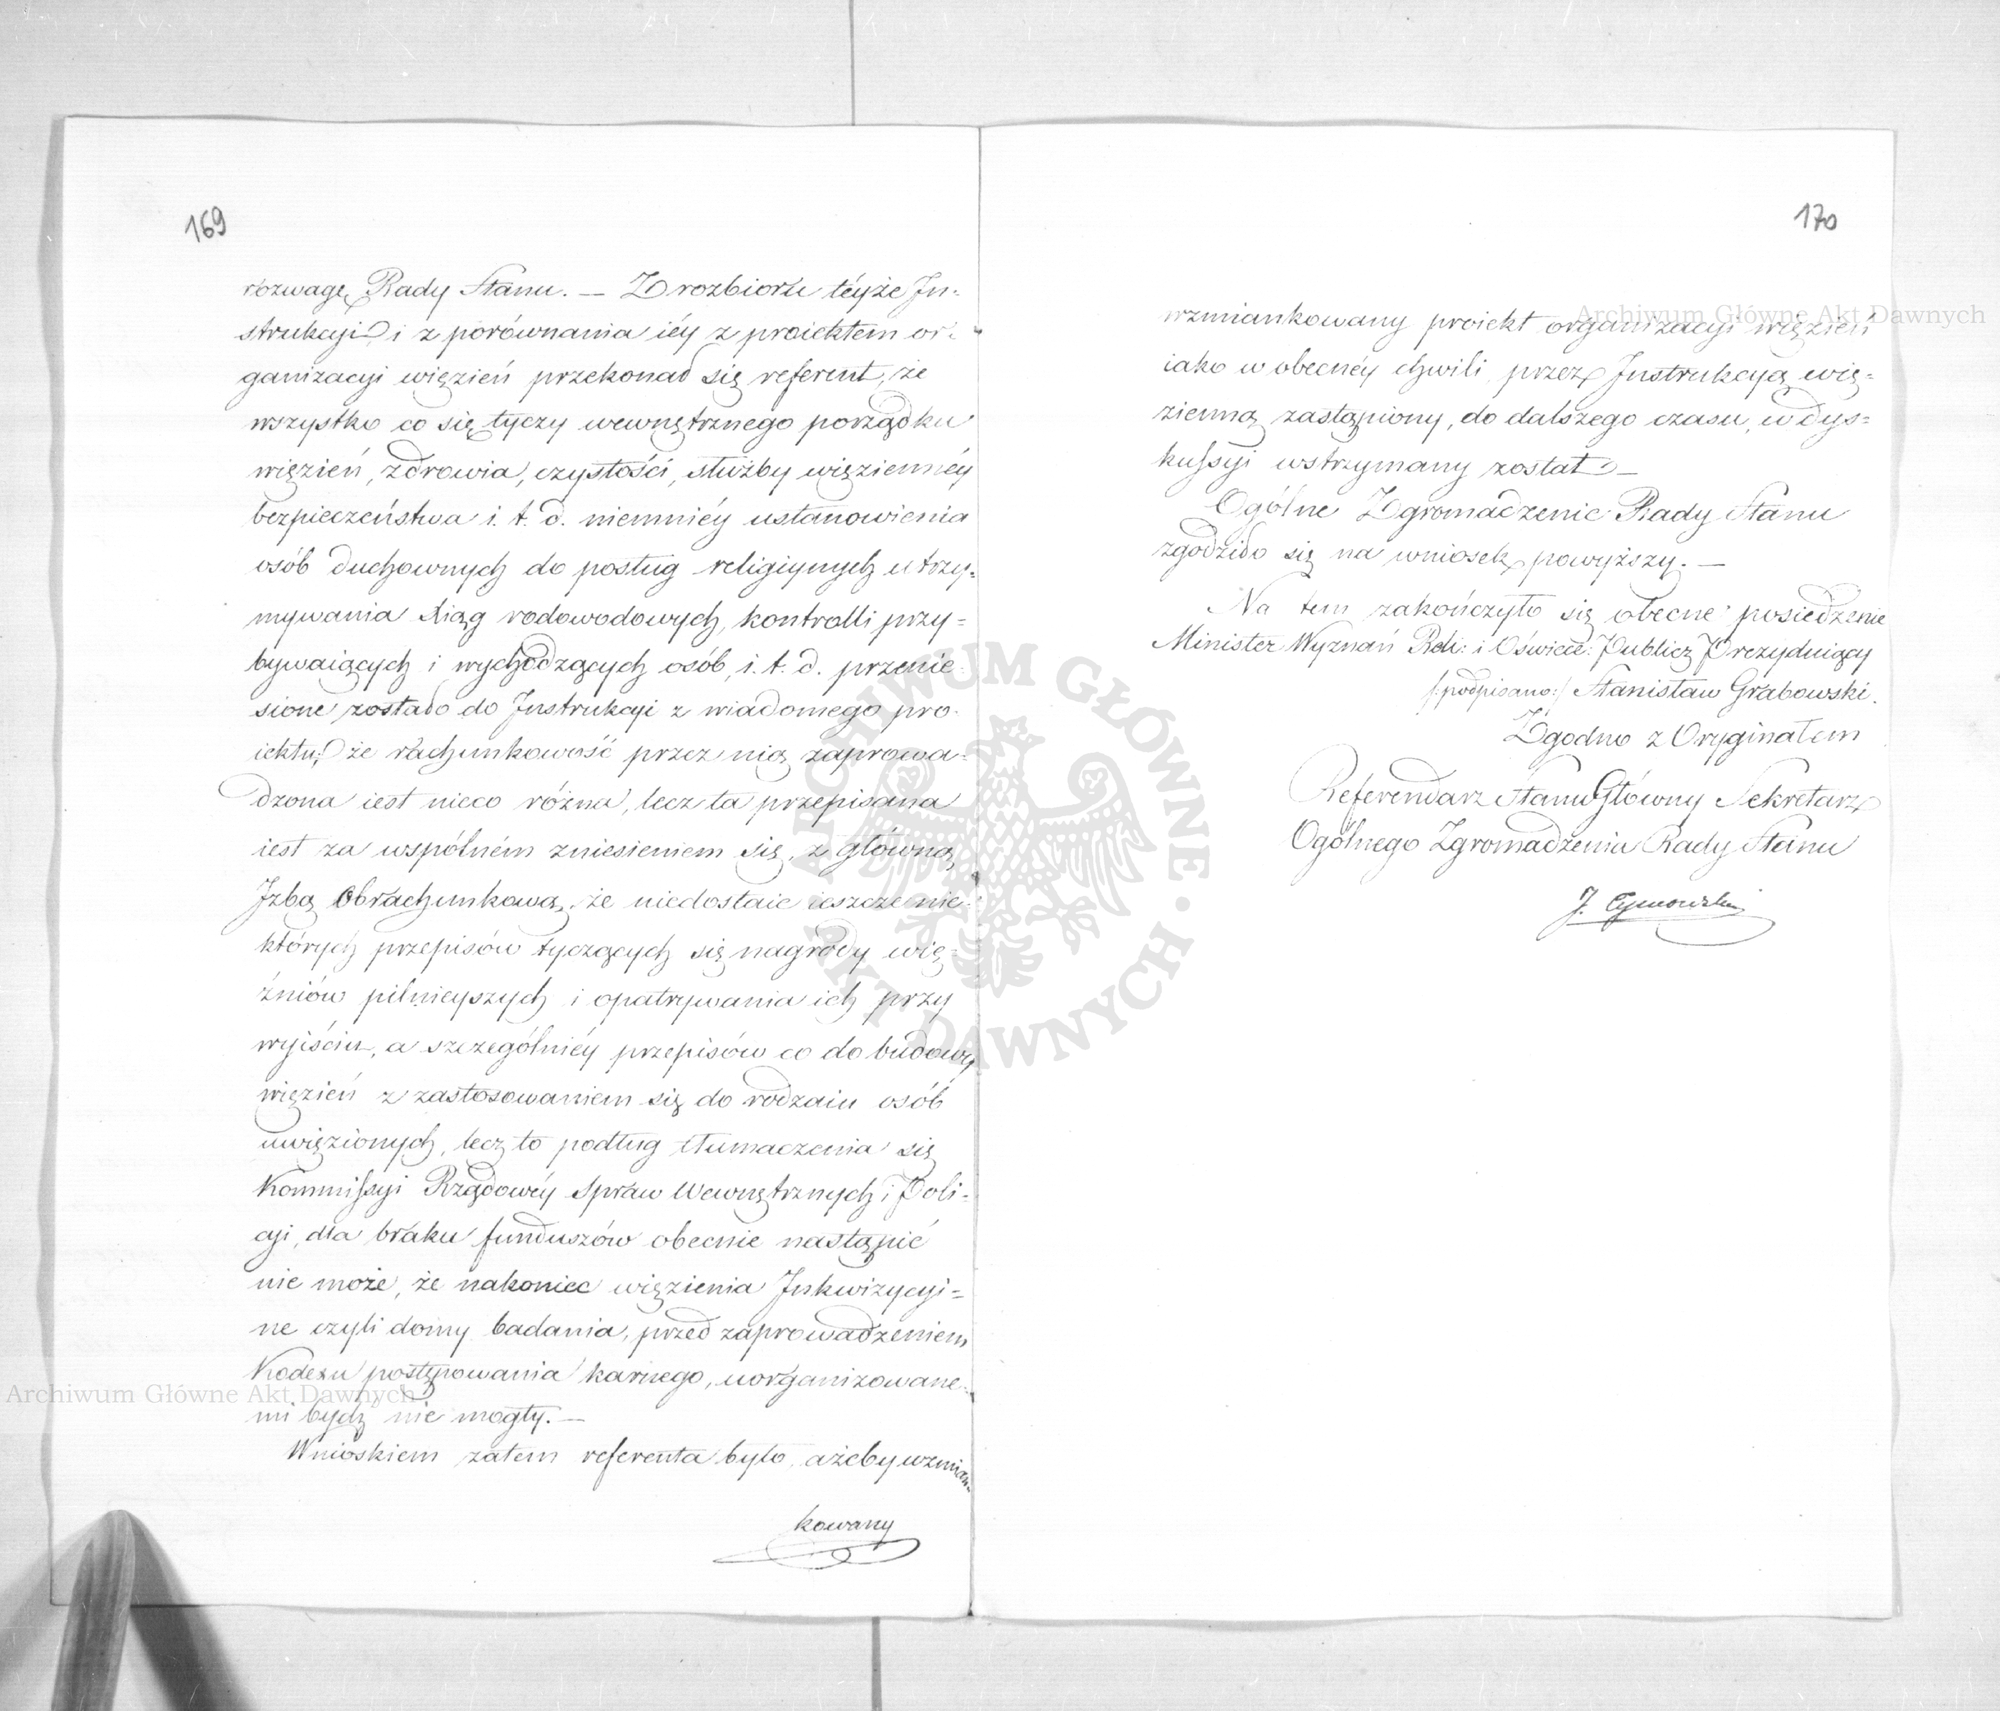 169
rozwagę Rady Stanu. — Z rozbioru téyże In-
strukcyi i z porównania iéy z proiektem or-
ganizacyi więzień przekonał się referent, że
wszystko co się tyczy wewnętrznego porządku
więzień, zdrowia, czystości, służby więziennéy
bezpieczeństwa i. t. d. niemniéy ustanowienia
osób duchownych do posług religiynych utrzy-
mywania xiąg rodowodowych, kontrolli przy-
bywaiących i wychodzących osób, i. t. d. przenie-
sione zostało do Instrukcyi z wiadomego pro-
iektu; że rachunkowość przez nią zaprowa-
dzona iest nieco różna, lecz ta przepisana
iest za wspólném zniesieniem się z główną
Izbą Obrachunkową, że niedostaie ieszcze nie-
których przepisów tyczących się nagrody wię-
źniów pilnieyszych i opatrywania ich przy
wyiściu, a szczególniéy przepisów co do budowy
więzień z zastosowaniem się do rodzaiu osób
uwięzionych, lecz to podług tłumaczenia się
Kommissyi Rządowéy Spraw Wewnętrznych i Poli-
cyi, dla braku funduszów obecnie nastąpić
nie może, że nakoniec więzienia Inkwizycyi-
ne czyli domy badania, przed zaprowadzeniem
Kodexu postępowania karnego, uorganizowane-
mi bydź nie mogły. —
Wnioskiem zatem referenta było, ażeby wzmian-
kowany
170
wzmiankowany proiekt organizacyi więzień
iako w obecnéy chwili przez Instrukcyą wię-
zienną zastąpiony, do dalszego czasu, w dys-
kussyi wstrzymany został. —
Ogólne Zgromadzenie Rady Stanu
zgodziło się na wniosek powyższy. —
Na tem zakończyło się obecne posiedzenie
Minister Wyznań Reli: i Oświece: Publicz Prezyduiący
/:podpisano:/ Stanisław Grabowski.
Zgodno z Oryginałem
Referendarz Stanu Główny Sekretarz
Ogólnego Zgromadzenia Rady Stanu
J. Tymowski
Archiwum Główne Akt Dawnych
Archiwum Główne Akt Dawnych
ARCHIWUM GŁÓWNE · AKT DAWNYCH ·